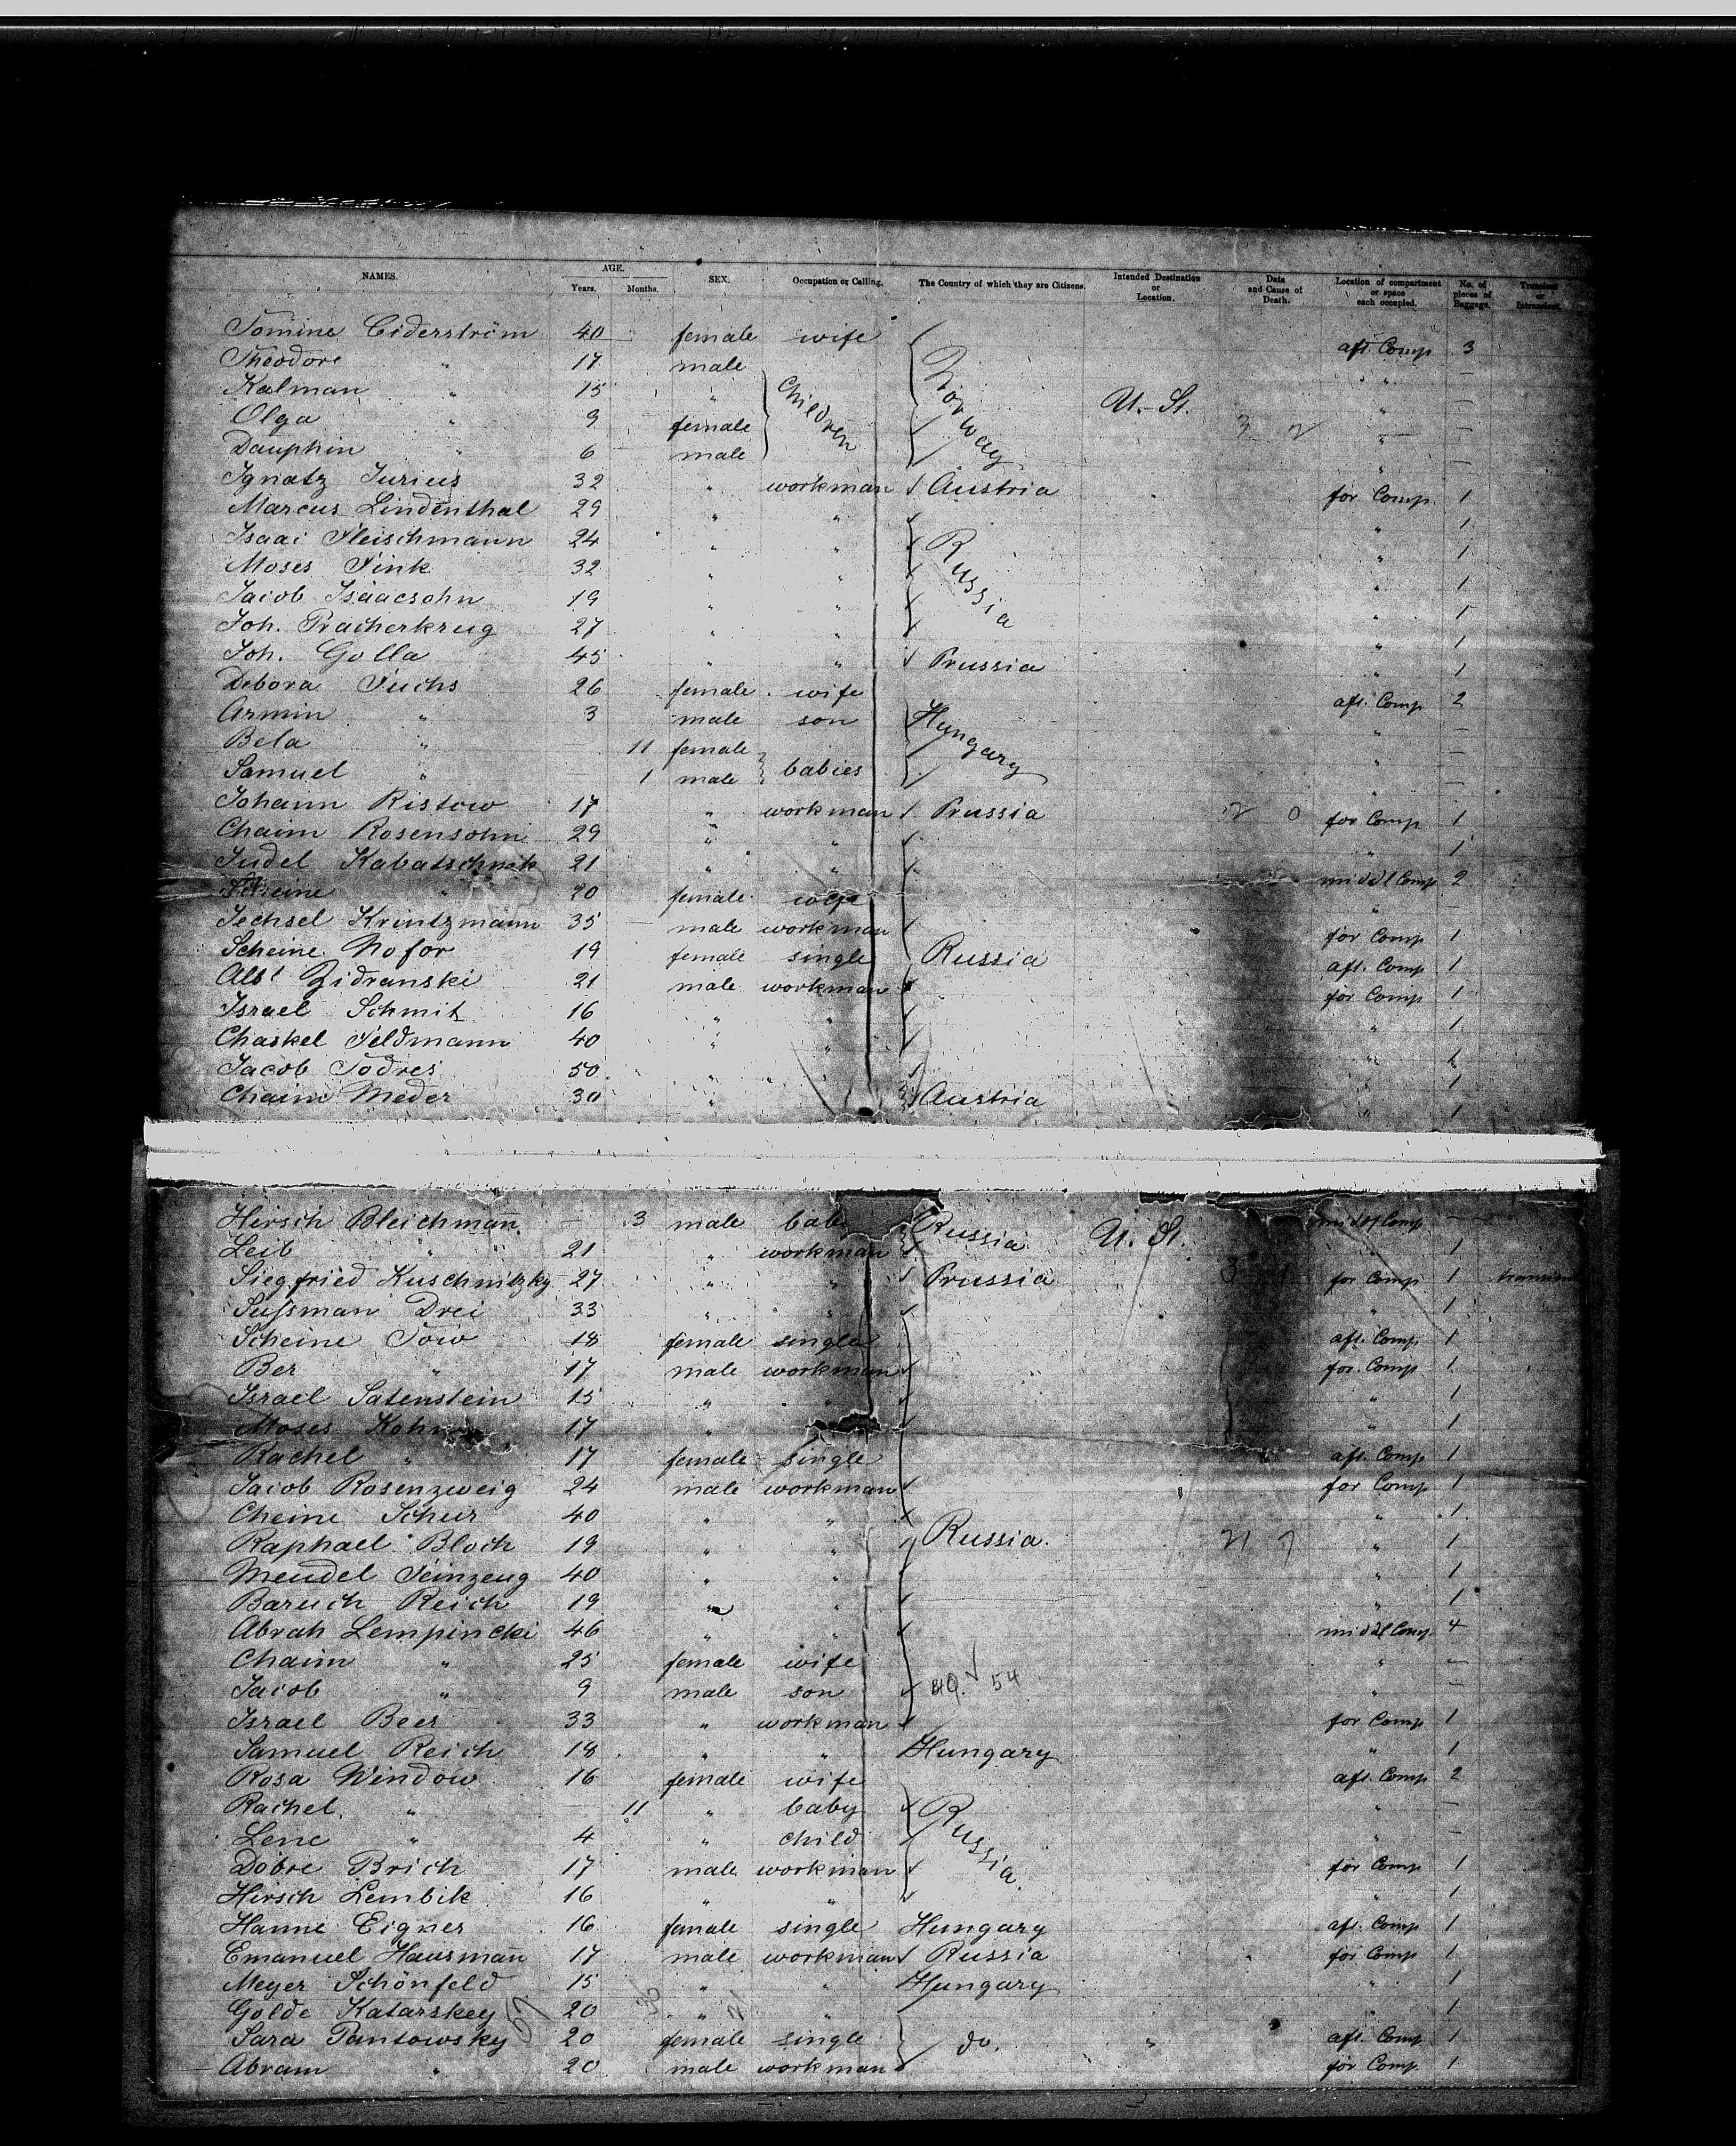 NAMES. AGE. Years. Months. SEX. Occupation or Calling. The Country of which they are Citizens. Intended Destination or Location. Date and Cause of Death. Location of compartment or space each occupied. No. of pieces of Baggage. Transient or Intransient.
Tomine Ciderström 40 female wife aft. Comp 3
Theodore " 17 male " —
Kalman " 15 " Children Norway U. St. " —
Olga " 9 female " —
Dauphin " 6 male " —
Ignatz Jurius 32 " workman Austria for Comp 1
Marcus Lindenthal 29 " " " 1
Isaac Fleischmann 24 " " Russia " 1
Moses Fink 32 " " " 1
Jacob Isaacsohn 19 " " " 1
Joh. Pracherkrug 27 " " " 1
Joh. Golla 45 " " Prussia " 1
Debora Fuchs 26 female wife aft. Comp 2
Armin " 3 male son Hungary " —
Bela " — 11 female " —
Samuel " — 1 male babies " —
Johann Ristow 17 " workman Prussia for Comp 1
Chaim Rosensohn 29 " " " 1
Judel Kabatschnik 21 " " middl Comp 2
" 20 female wife " —
Jechsel Krintzmann 35 male workman for Comp 1
Scheine Nofor 19 female single Russia aft. Comp 1
Albt Zidranski 21 male workman for Comp 1
Israel Schmit 16 " " " 1
Chaskel Feldmann 40 " " "
Jacob Todres 50 " " 1
Chaim Meder 30 " Austria " 1
Hirsch Bleichmann — 3 male Russia U. St. middl Comp —
Leib " 21 " workman 1
Siegfried Kuschnitzky 27 " " Prussia for Comp 1
Sussman Drei 33 " " " 1
Scheine Tow 18 female single aft. Comp 1
Ber " 17 male workman for Comp 1
Israel Satenstein 15 " " " 1
Moses Kohn 17 " " 1
Rachel " 17 female single aft. Comp 1
Jacob Rosenzweig 24 male workman for Comp 1
Cheine Schur 40 " " " 1
Raphael Bloch 19 " " Russia. " 1
Mendel Feinzeug 40 " " " 1
Baruch Reich 19 " " " 1
Abrah Lempincki 46 " " middl Comp 4
Chaim " 25 female wife " —
Jacob " 9 male son 54 " —
Israel Beer 33 " workman for Comp 1
Samuel Reich 18 " " Hungary " 1
Rosa Window 16 female wife aft. Comp 2
Rachel " — 11 " baby Russia " —
Lene " 4 " child " —
Dobre Brich 17 male workman for Comp 1
Hirsch Lembik 16 " " " 1
Hanne Eigner 16 female single Hungary aft. Comp 1
Emanuel Hausmann 17 male workman Russia for Comp 1
Meyer Schönfeld 15 " " Hungary " 1
Golde Katarskey 20 " " " 1
Sara Pantowsky 20 female single do. " aft. Comp 1
Abram " 20 male workman for Comp 1